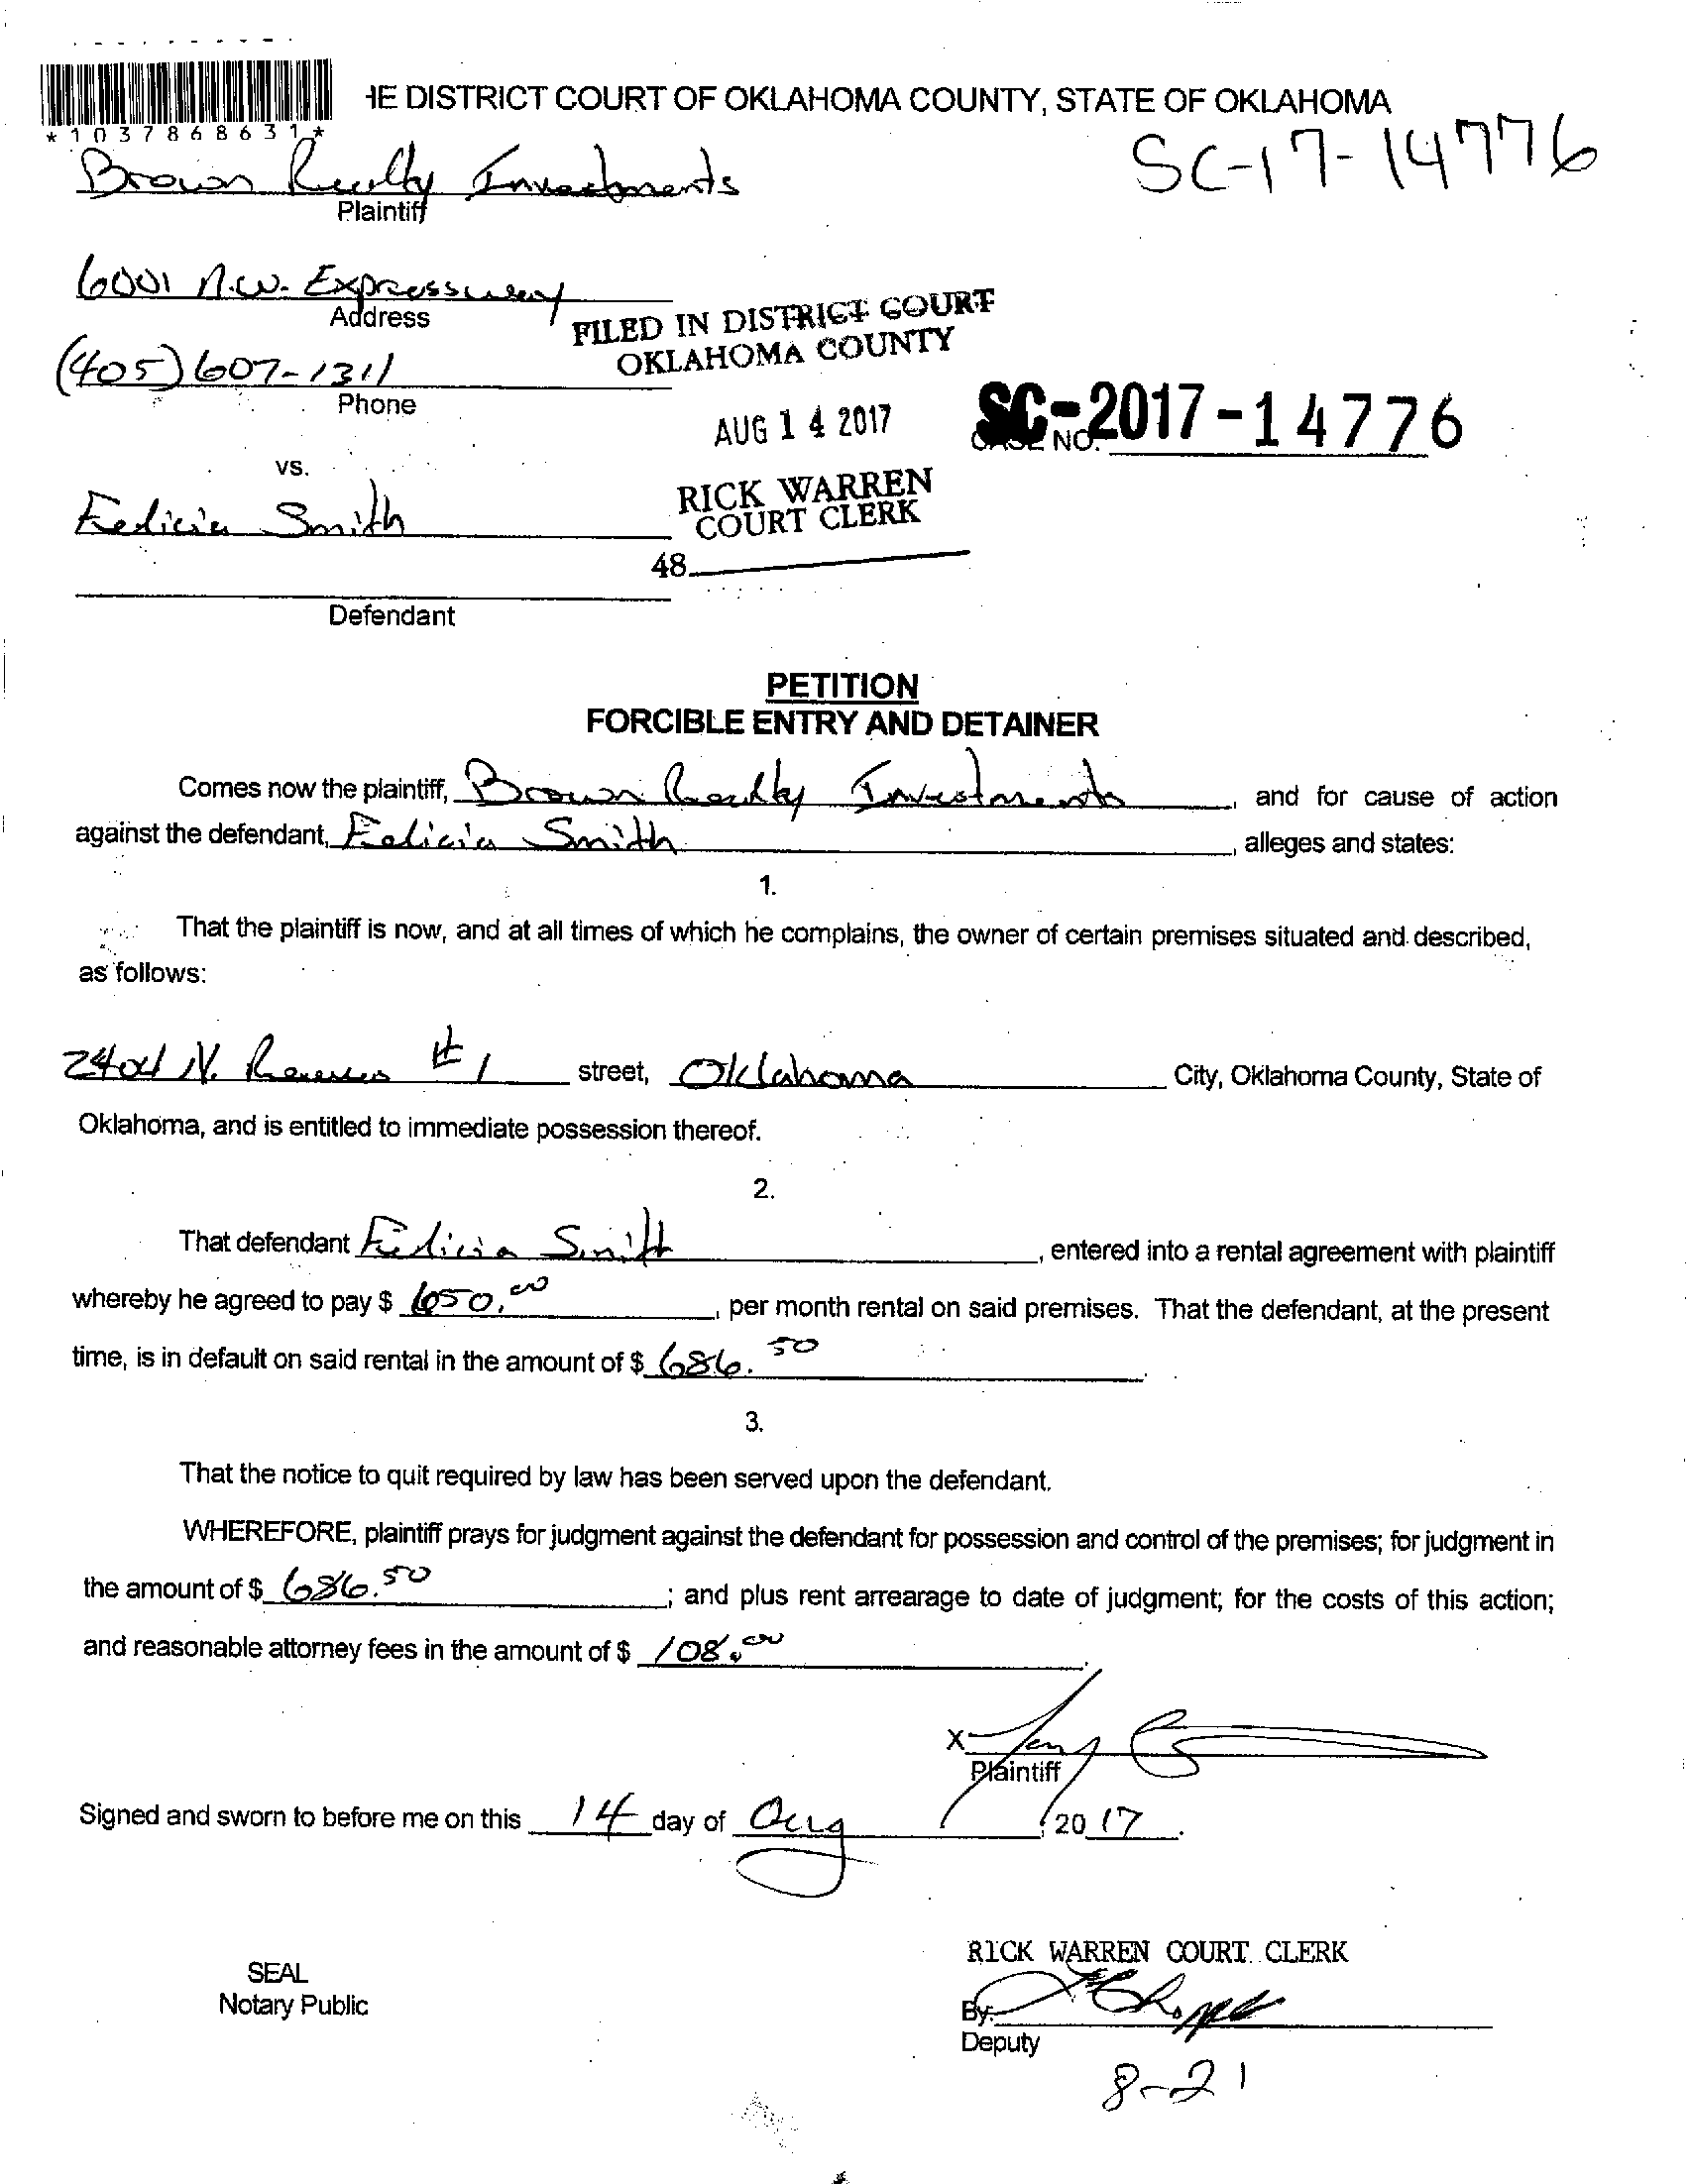 IE DISTRICT COURT OF OKLAHOMA COUNTY, STATE OF OKLAHOMA
*1037868631*
SC-17-14776
Brown Realty Investments
Plaintiff
6001 N.W. Expressway
Address
FILED IN DISTRICT COURT
OKLAHOMA COUNTY
(405) 607-1311
Phone
AUG 14 2017
SC-2017-14776
CASE NO.
vs.
RICK WARREN
COURT CLERK
Felicia Smith
48
Defendant
PETITION
FORCIBLE ENTRY AND DETAINER
Comes now the plaintiff, Brown Realty Investments, and for cause of action
against the defendant, Felicia Smith, alleges and states:
1.
That the plaintiff is now, and at all times of which he complains, the owner of certain premises situated and described,
as follows:
2404 N. #1 street, Oklahoma City, Oklahoma County, State of
Oklahoma, and is entitled to immediate possession thereof.
2.
That defendant Felicia Smith, entered into a rental agreement with plaintiff
whereby he agreed to pay $ 650.00, per month rental on said premises. That the defendant, at the present
time, is in default on said rental in the amount of $ 686.50.
3.
That the notice to quit required by law has been served upon the defendant.
WHEREFORE, plaintiff prays for judgment against the defendant for possession and control of the premises; for judgment in
the amount of $ 686.50; and plus rent arrearage to date of judgment; for the costs of this action;
and reasonable attorney fees in the amount of $ 108.00.
X
Plaintiff
Signed and sworn to before me on this 14 day of Aug, 2017.
RICK WARREN COURT CLERK
SEAL
Notary Public
By:
Deputy
8-21